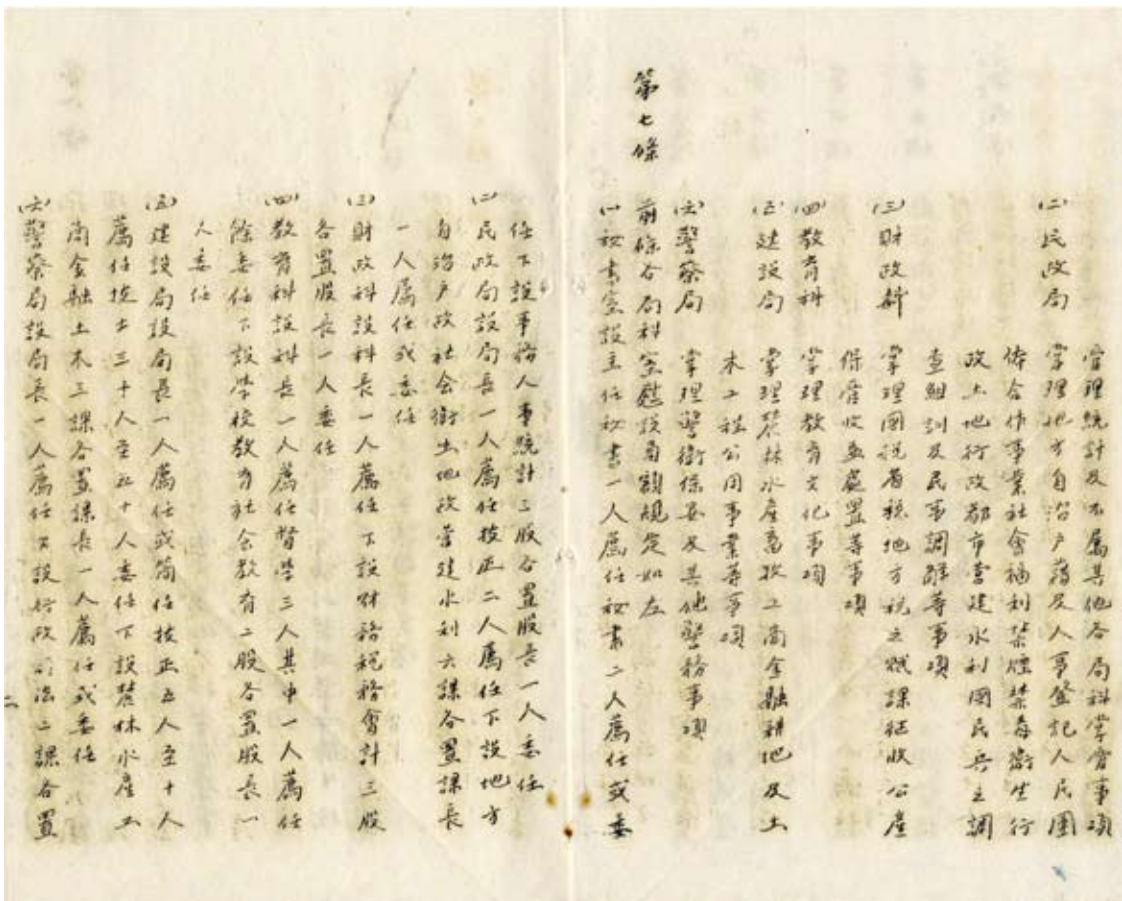 管理統計及不屬其他各局科掌管事項
(二)民政局 掌理地方自治户籍及人事登記人民團
体合作事業社會福利禁煙禁毒衛生行
政土地行政都市营建水利國民兵之調
查組訓及民事調解等事項
(三)財政科 掌理國税省税地方税之賦課征收公產
保管收益處置等事項
(四)教育科 掌理教育文化事項
(五)建設局 掌理農林水產畜牧工商金融耕地及土
木工程公用事業等事項
(六)警察局 掌理警衛保安及其他警務事項
第七條 前條各局科室應設員額規定如左
(一)秘書室設主任秘書一人薦任秘書二人薦任或委
任下設事務人事統計三股各置股長一人委任
(二)民政局設局長一人薦任技正二人薦任下設地方
自治户政社会衛生地政营建水利六課各置課長
一人薦任或委任
(三)財政科設科長一人薦任下設財務税務會計三股
各置股長一人委任
(四)教育科設科長一人薦任督学三人其中一人薦任
餘委任下設学校教育社会教育二股各置股長一
人委任
(五)建設局設局長一人薦任或简任技正五人至十人
薦任技士三十人至五十人委任下設農林水產工
商金融土木三課各置課長一人薦任或委任
(六)警察局設局長一人薦任下設行政司法二課各置
二